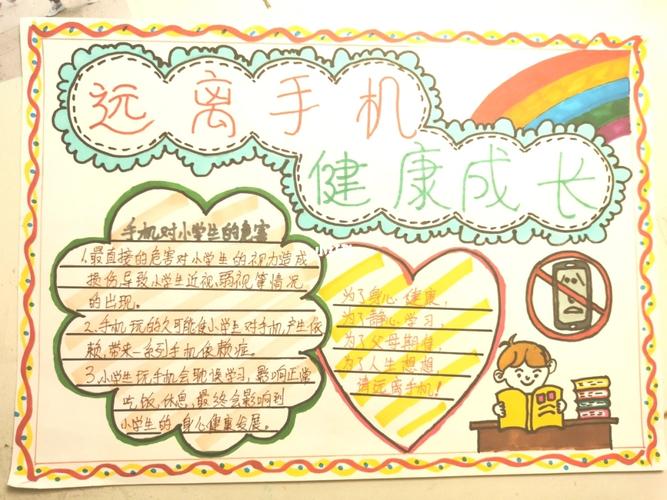 远离手机
健康成长
手机对小学生的危害
1.最直接的危害对小学生的视力造成
损伤导致小学生近视,弱视等情况
的出现。
2.手机玩的久可能使小学生对手机产生依
赖,带来一系列手机依赖症。
3.小学生玩手机会耽误学习,影响正常
吃饭,休息,最终会影响到
小学生的身心健康发展。
为了身心健康,
为了静心学习,
为了父母期佳
为了人生想想,
请远离手机!